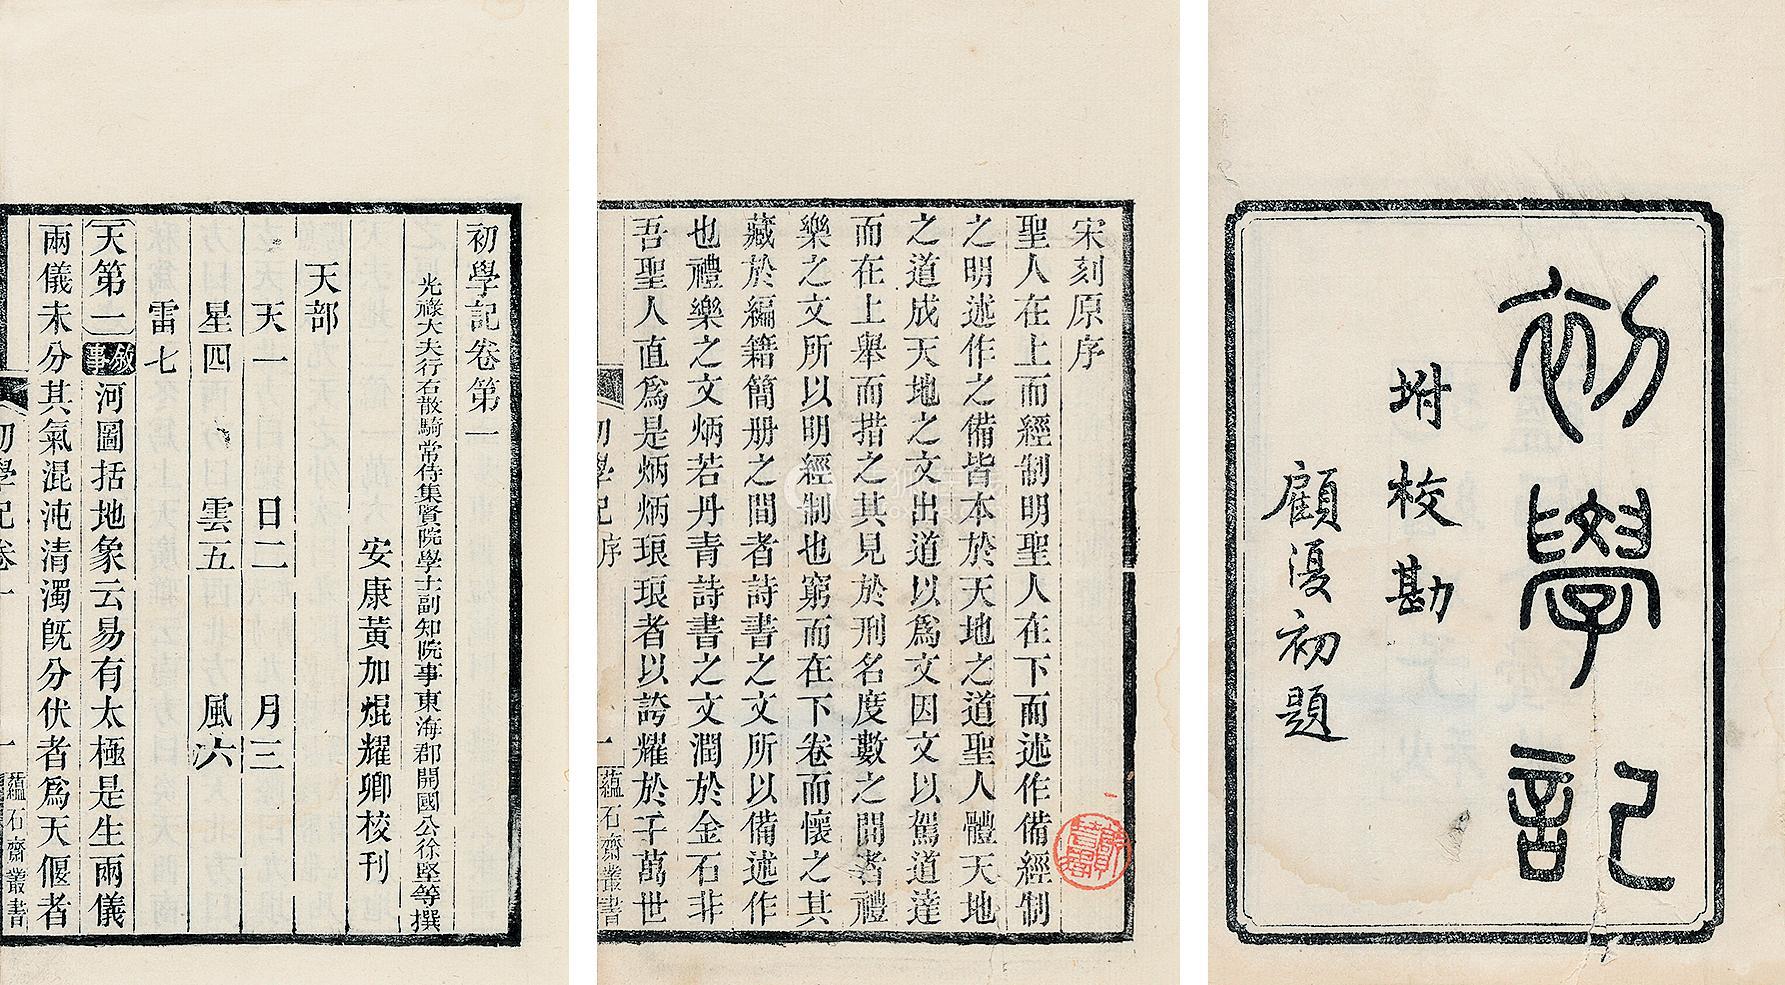 初學記
坿校勘
顧澐初題
宋刻原序
聖人在上而經制明聖人在下而述作備經制
之明述作之備皆本於天地之道聖人體天地
之道成天地之文出道以爲文因文以駕道達
而在上舉而措之其見於刑名度數之間者禮
樂之文所以明經制也窮而在下卷而懷之其
藏於編籍簡册之間者詩書之文所以備述作
也禮樂之文炳若丹青詩書之文潤於金石非
吾聖人直爲是炳炳琅琅者以誇耀於千萬世
初學記序
一
蘊石齋叢書
初學記卷第一
光祿大夫行右散騎常侍集賢院學士副知院事東海郡開國公徐堅等撰
安康黃加焜耀卿校刊
天部
天一 日二 月三
星四 雲五 風六
雷七
天第一 敘事 河圖括地象云易有太極是生兩儀
兩儀未分其氣混沌清濁既分伏者爲天偃者
初學記卷一
一
蘊石齋叢書